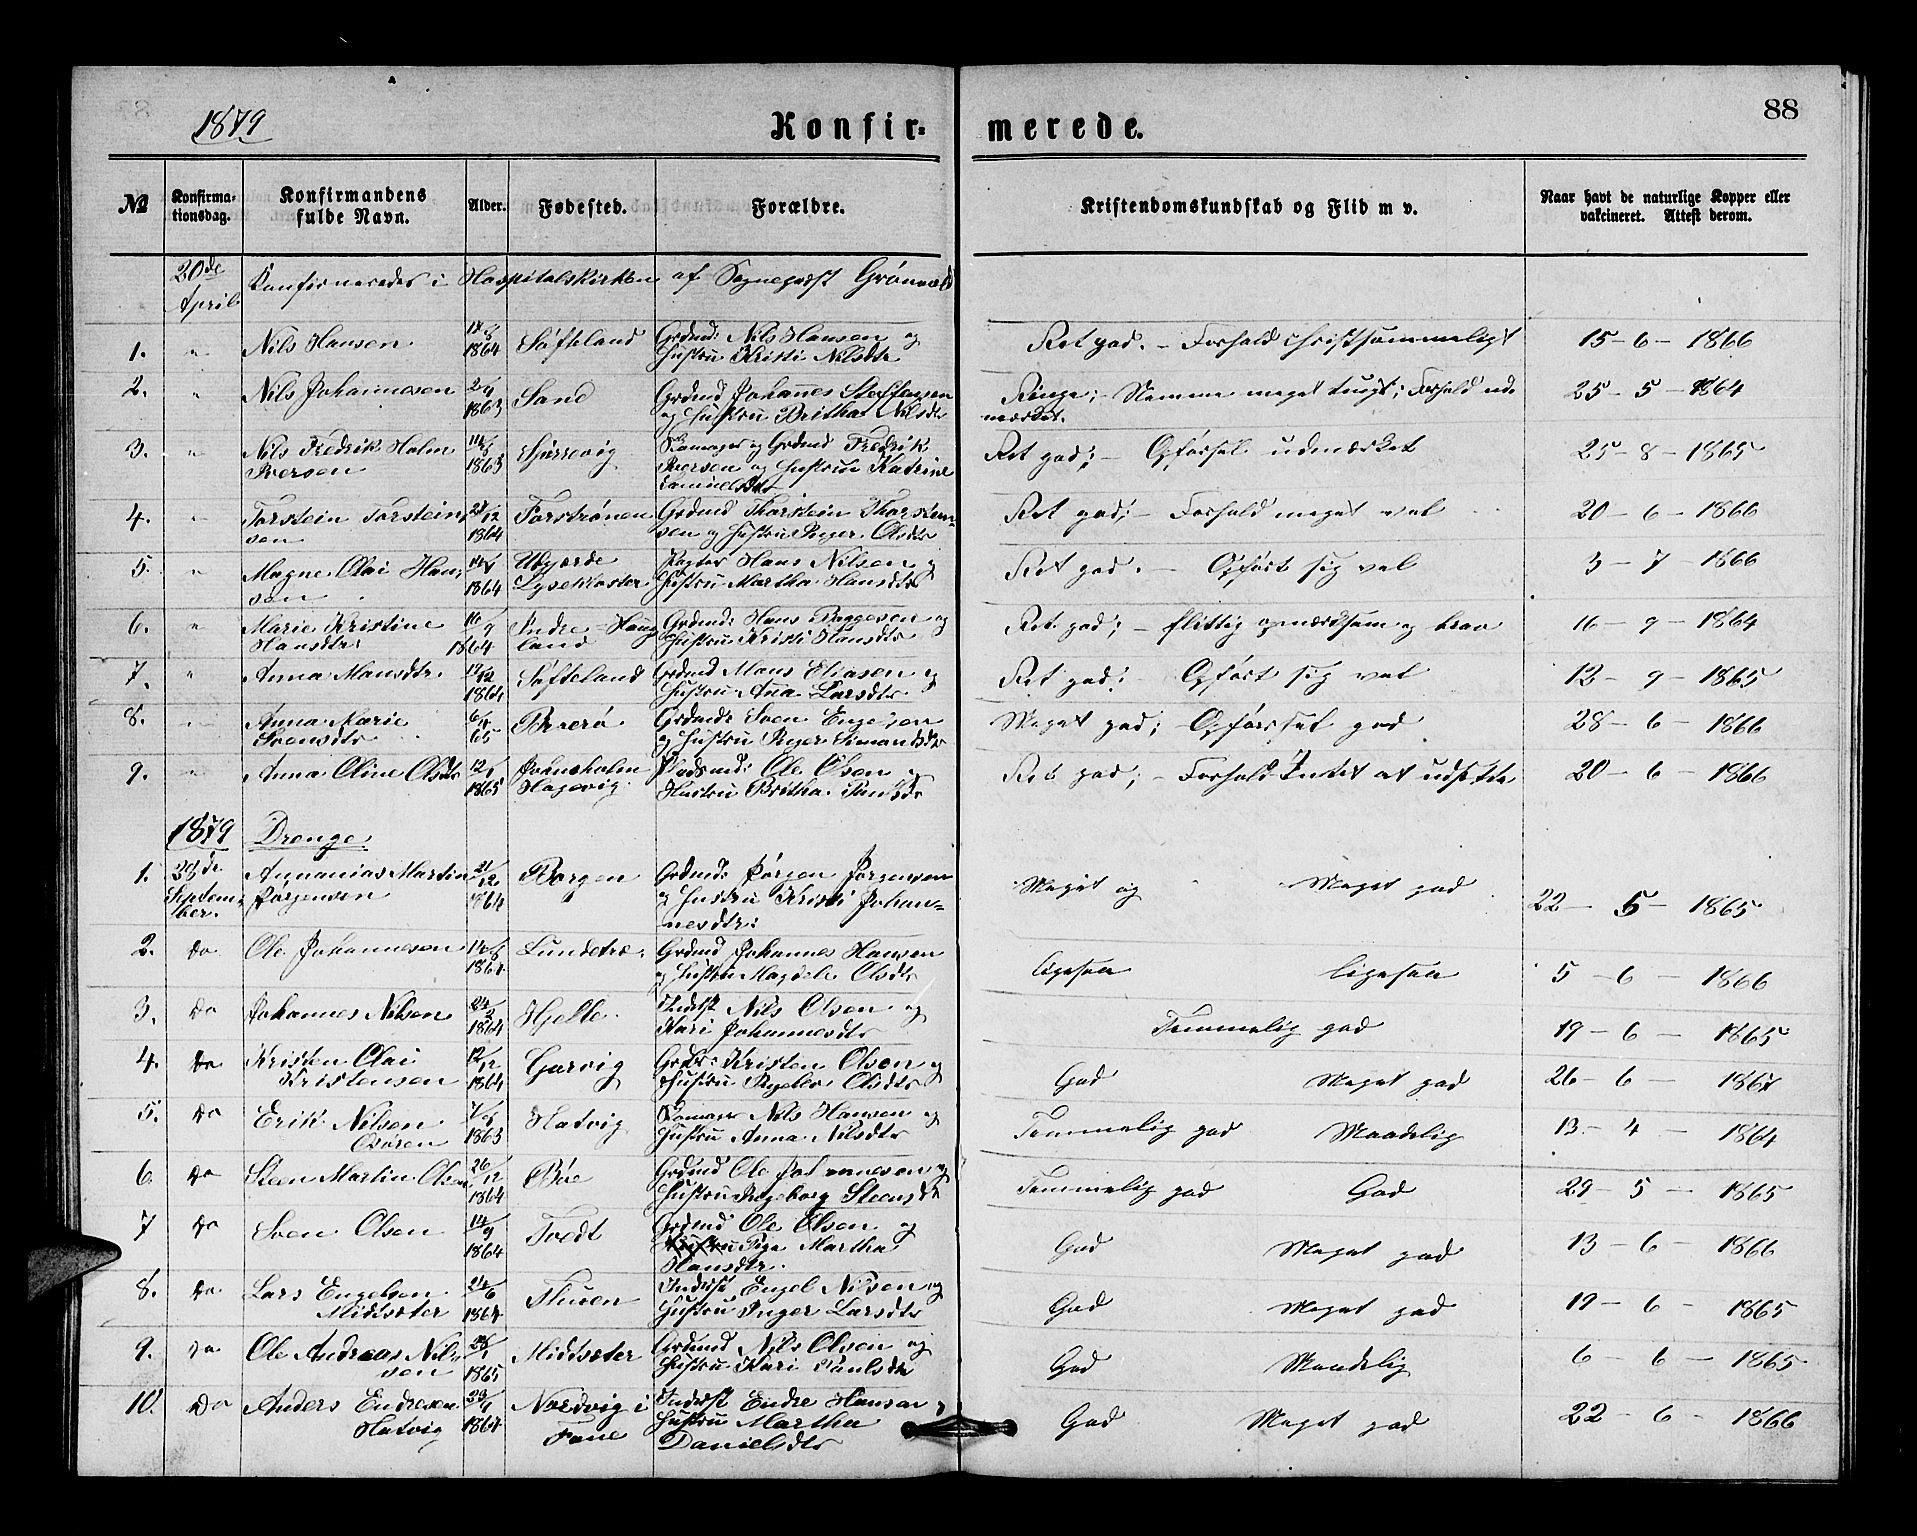 1879
Konfir-
merede.
88
№
Konfirma-
tionsdag.
Konfirmandens
fulde Navn.
Alder.
Fødested.
Forældre.
Kristendomskundskab og Flid m v.
Naar havt de naturlige Kopper eller
vakcineret. Attest derom.
20de
April
Konfirmeredes i Hospitalskirken af Sognepræst Grönvold
1. " Nils Hansen 1864 Søfteland Grdmd: Nils Hansen og Hustru Kristi Nilsdtr Ret god. - Forhold christsømmeligt 15 - 6 - 1866
2. " Nils Johannesen 1863 Sand Grdmd Johanes Steffensen og Hustru Britha Nilsdtr Ringe; - Nemme meget tungt; Forhold ud- mærket. 25 - 5 - 1864
3. " Nils Fredrik Holm 1863 og Grdmd Fredrik og Hustru Katrine Ret god; - Opførsel udmærket 25 - 8 - 1865
4. " Torstein Torstein- sen 12 1864 Grdmd Thorstein Thorstein- sen og Hustru Inger Olsdtr Ret god; - Forhold meget vel 20 - 6 - 1866
5. " Magne Olai Han- sen 1864 Lysekloster Hans Nilsen og Hustru Martha Hansdtr Ret god. - Opført sig vel 3 - 7 - 1866
6. " Marie Kristine Hansdtr. 1864 Indre Haug- land Grdmd: Hans og Hustru Kristi Hansdtr Ret god; - flittig og brav 16 - 9 - 1864
7. " Anna Mansdtr. 12 1864 Søfteland Grdmd Mons Eliasen og Hustru Ana Larsdtr Ret god; - Opført sig vel 12 - 9 - 1865
8. " Anna Marie Svensdtr 65 Grdmd: Sven og Hustru Inger Simonsdtr Meget god; - Opførsel god 28 - 6 - 1866
9. " Anna Oline Olsdtr 1865 Johnsholm Hagevig Pladsmd: Ole Olsen og Hustru Britha Ret god; - Forhold Intet at udsætte 20 - 6 - 1866
1879 Drenge.
1. 28de Septem- ber. Annanias Martin Jørgensen 12 64 Borgen Grdmd: Jørgen Jørgensen og Hustru Kristi Johan- nesdtr: Meget og Meget god 22 - 5 - 1865
2. Do Ole Johannesen 1864 Lundetræ. Grdmd Johannes Hansen og Hustru Magdele Olsdtr ligesaa ligesaa 5 - 6 - 1866
3. Do Johannes Nilsen 24/2 1864 Hjelle. Inderst Nils Olsen og Kari Johannesdtr Temmelig god 19 - 6 - 1865
4. Do Kristen Olai Kristensen 12/12 1864 Gjørvig Kristen Olsen og Hustru Olsdtr God Meget god 26 - 6 - 1867
5. Do Erik Nilsen Osøren 1863 Hatvig Nils Hansen og Hustru Anna Nilsdtr Temmelig god Maadelig 13 - 4 - 1864
6. Do Steen Martin Olsen 26/12 1864 Bøe Grdmd Ole Johannesen og Hustru Ingeborg Steensdtr Temmelig god God 29 - 5 - 1865
7 Do Sven Olsen 14/9 1864 Tvedt Grdmd Ole Olsen og Pige Martha Hansdtr. God Meget god 13 - 6 - 1866
8. Do Lars Engelsen Midtsæter 24/6 1864 Thuen Inderst Engel Nilsen og Hustru Inger Larsdtr God Meget god 19 - 6 - 1865
9. Do Ole Andreas Nil- sen 1865 Midtsæter Grdmd Nils Olsen og Hustru Kari Paulsdtr God Maadelig 6 - 6 - 1865
10. Do Anders Endresen Hatvig 1864 Nordvig i Fane Inderst Endre Hansen og Hustru Martha Danielsdtr God Meget god 22 - 6 - 1866